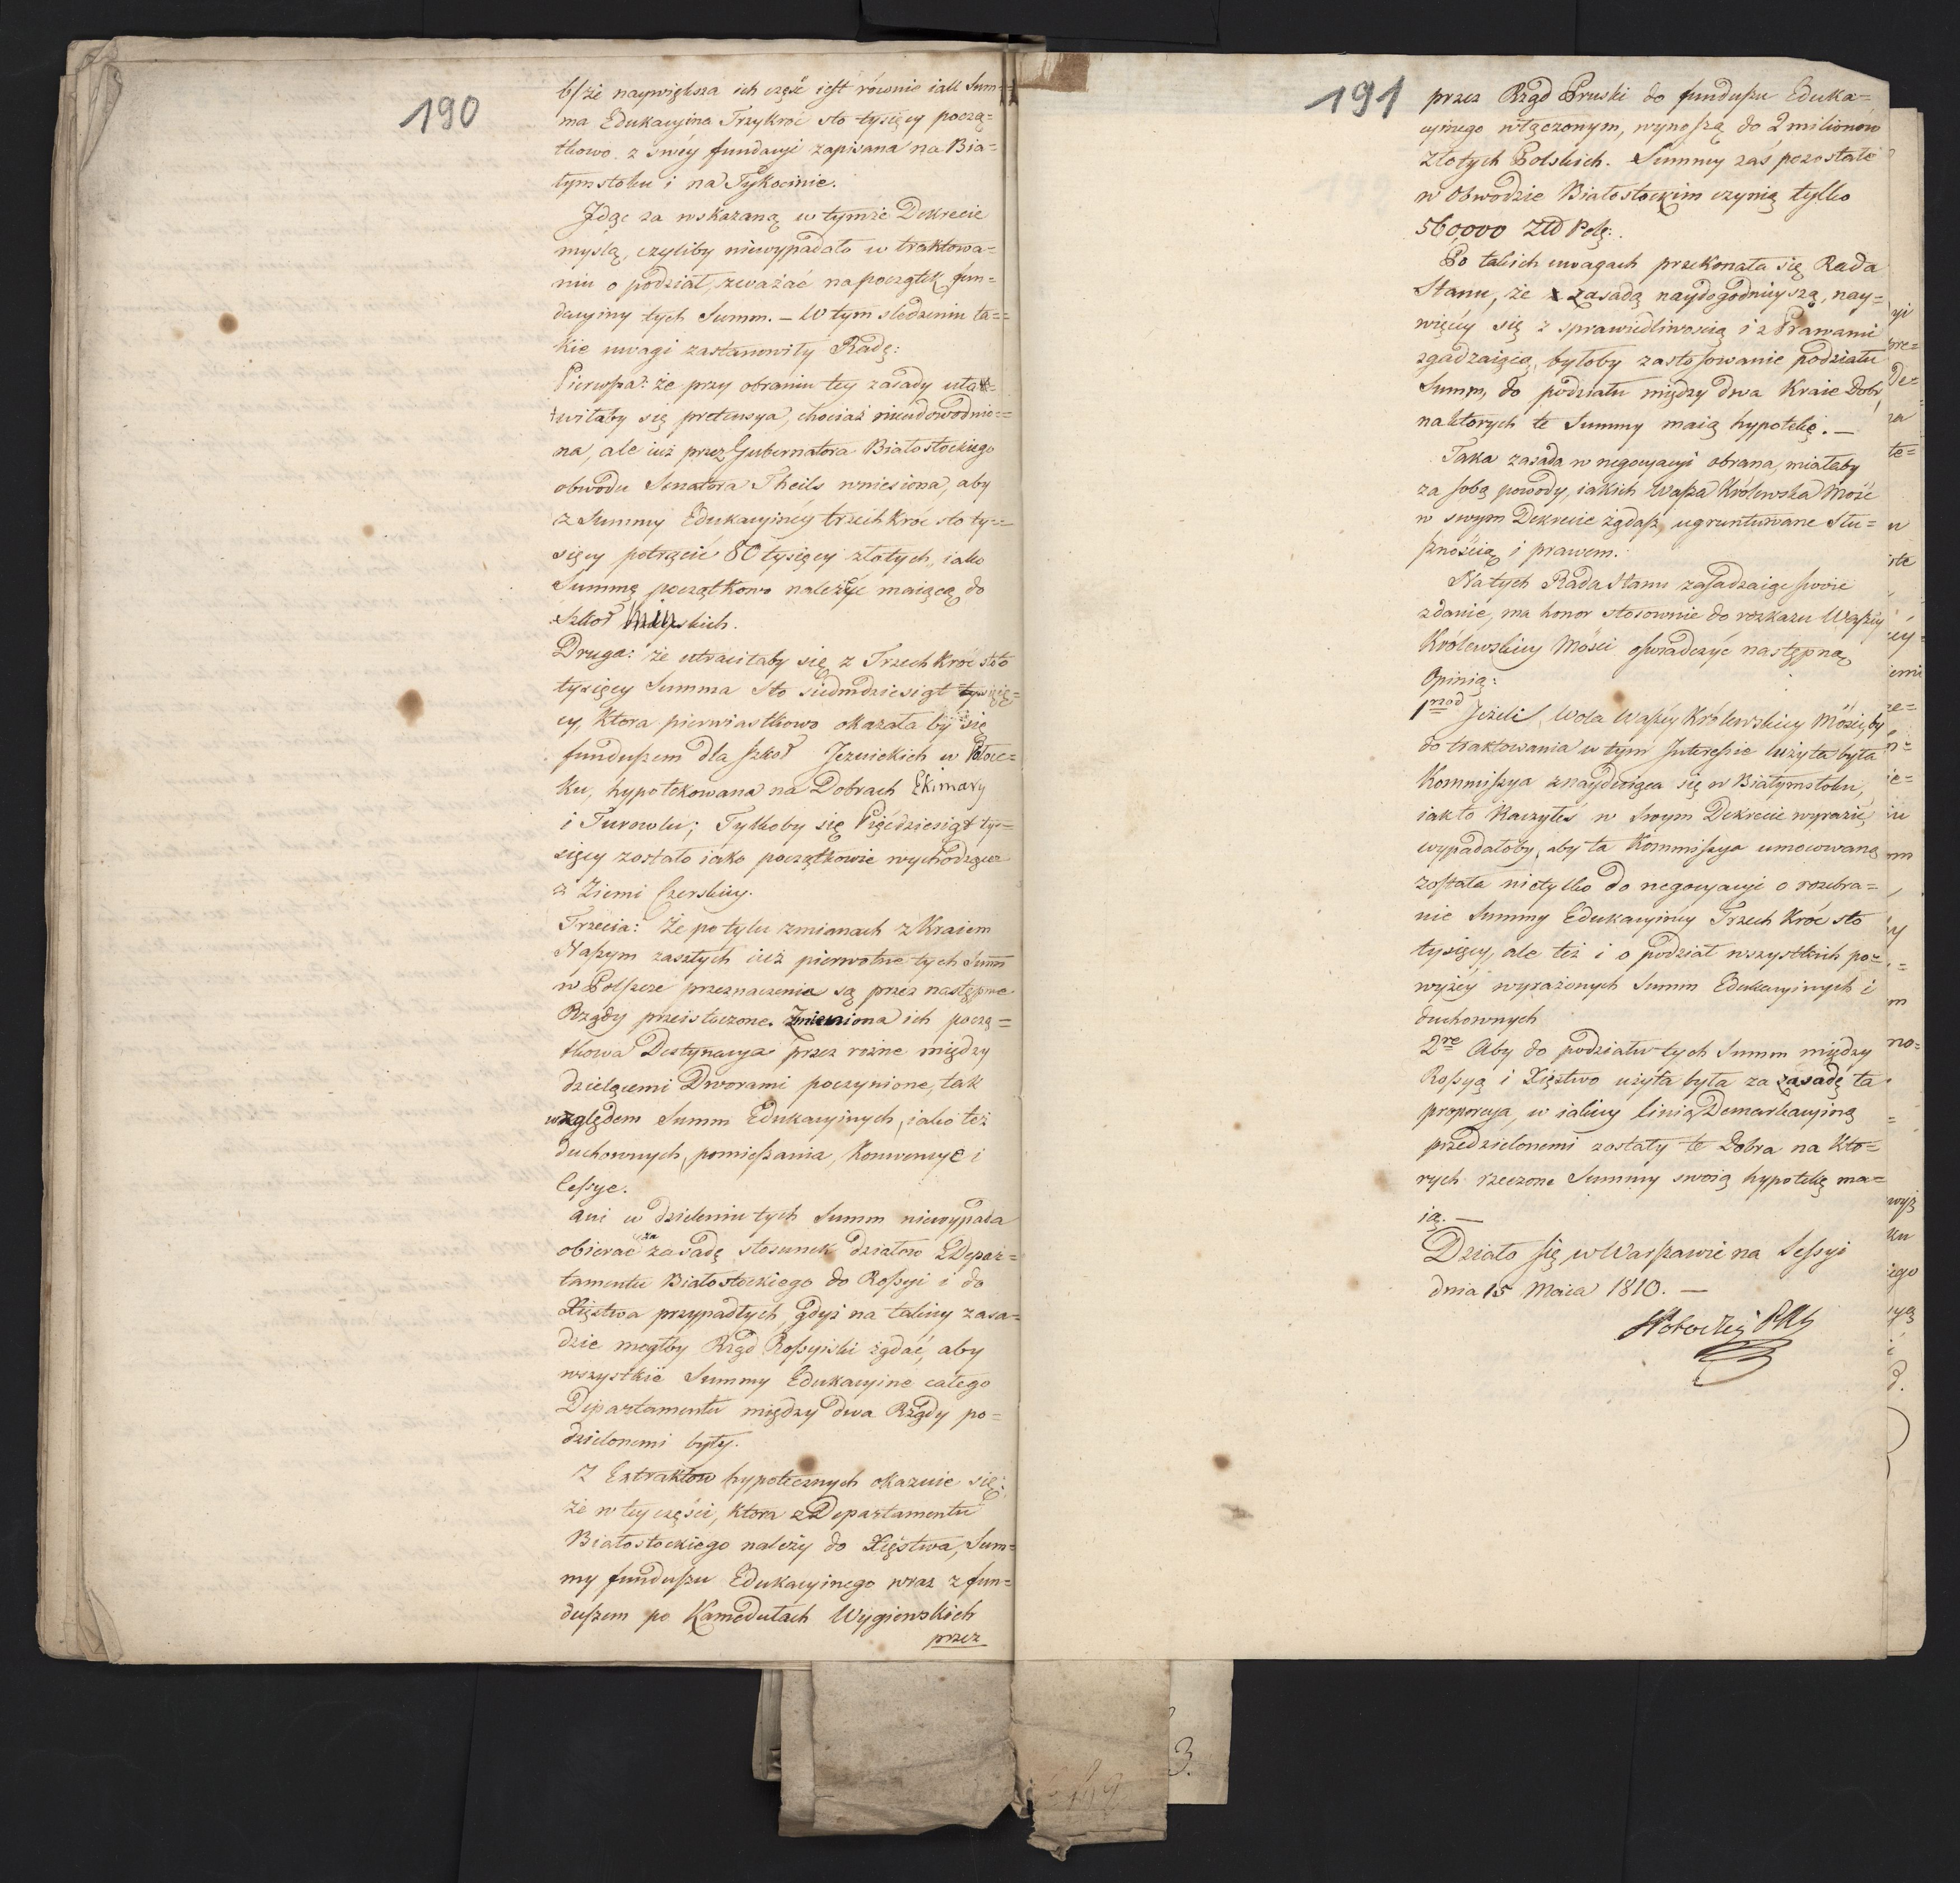 190
b/ że naywiększa ich część iest równie iak Sum=
ma Edukacyina Trzykroć sto tysięcy począ=
tkowo z swéy fundacyi zapisana na Bia=
łymstoku i na Tykocinie.
Idąc za wskazaną w tymże Dekrecie
myślą, czyliby niewypadało w traktowa=
niu o podział, zważać na początek fun=
dacyiny tych Summ. – W tym śledzeniu ta=
kie uwagi zastanowiły Radę:
Pierwsza: że przy obraniu tey zasady uła=
twiłaby się pretensya, chociaż nieudowodnio=
na, ale iuż przez Gubernatora Białostockiego
obwodu Senatora Theils wniesiona, aby
z Summy Edukacyinéy trzech kroć sto ty=
sięcy potrącić 80 tysięcy złotych, iako
Summę początkowo należyć maiącą do
Szkoł skich.
Druga: że utraciłaby się z Trzech kroć sto
tysięcy Summa sto siedmdziesiąt tysię=
cy, ktora pierwiastkowo okazała by się
funduszem dla szkoł Jezuickich w Połoc=
ku, hypotekowana na Dobrach Ekimany
i Turowlu; Tylkoby się Pięćdziesiąt ty=
sięcy zostało iako początkowie wychodzące
z Ziemi Czerskiey.
Trzecia: Że po tylu zmianach z Kraiem
Naszym zaszłych iuż pierwotne tych Summ
w Polszcze przeznaczenia są przez następne
Rządy przeistoczone. Zmieniona ich począ=
tkowa Destynacya przez rożne między
dzielącemi Dworami poczynione, tak
względem Summ Edukacyinych, iako też
duchownych, pomieszania, Konwencye i
Cessye.
Ani w dzieleniu tych Summ niewypada
obierać za zasadę stosunek działow z Depar=
tamentu Białostockiego do Rossyi i do
Xięstwa przypadłych, gdyż na takiey zasa=
dzie mogłby Rząd Rossyiski żądać, aby
wszystkie Summy Edukacyine całego
Departamentu między dwa Rządy po=
dzielonemi były.
Z Extraktow hypotecznych okazuie się:
że w tey części, ktora z Departamentu
Białostockiego należy do Xięstwa, Sum=
my funduszu Edukacyinego wraz z fun=
duszem po Kamedułach Wygierskich
przez
191
przez Rząd Pruski do funduszu Eduka=
cyinego włączonym, wynoszą do 2 milionow
złotych Polskich. Summy zaś pozostałe
w Obwodzie Białostockim czynią tylko
560,000 Złd Polę:
Po takich uwagach przekonała się Rada
Stanu, że zasadą naydogodnieyszą, nay=
więcéy się z sprawiedliwością i z Prawami
zgadzaiącą, byłoby zastosowanie podziału
Summ, do podziału między dwa Kraie Dobr,
na ktorych te Summy maią hypotekę. –
Taka zasada w negocyacyi obrana, miałaby
za sobą powody, iakich Wasza Królewska Mość
w swym Dekrecie żądasz, ugruntowane słu=
sznością i prawem.
Na tych Rada Stanu zasadzaiąc swoie
zdanie, ma honor stosownie do rozkazu Waszéy
Królewskiey Mości oświadczyć następną
Opinią:
1mod Jeżeli Wola Waszéy Królewskiey Mości, by
do traktowania w tym Interessie użyta była
Kommissya znayduiąca się w Białymstoku,
iak to Raczyłeś w swym Dekrecie wyrazić,
wypadałoby, aby ta Kommissya umocowaną
została nietylko do negocyacyi o rozebra=
nie Summy Edukacyinéy Trzech Kroć sto
tysięcy, ale też i o podział wszystkich po=
wyżéy wyrażonych Summ Edukacyinych i
duchownych
2re Aby do podziału tych Summ między
Rossyą i Xięstwo użyta była za zasadę ta
proporcya, w iakiey linią Demarkacyiną
przedzielonemi zostały te Dobra na kto=
rych rzeczone Summy swoią hypotekę ma=
ią. –
Działo się w Warszawie na Sessyi
dnia 15 Maia 1810. –